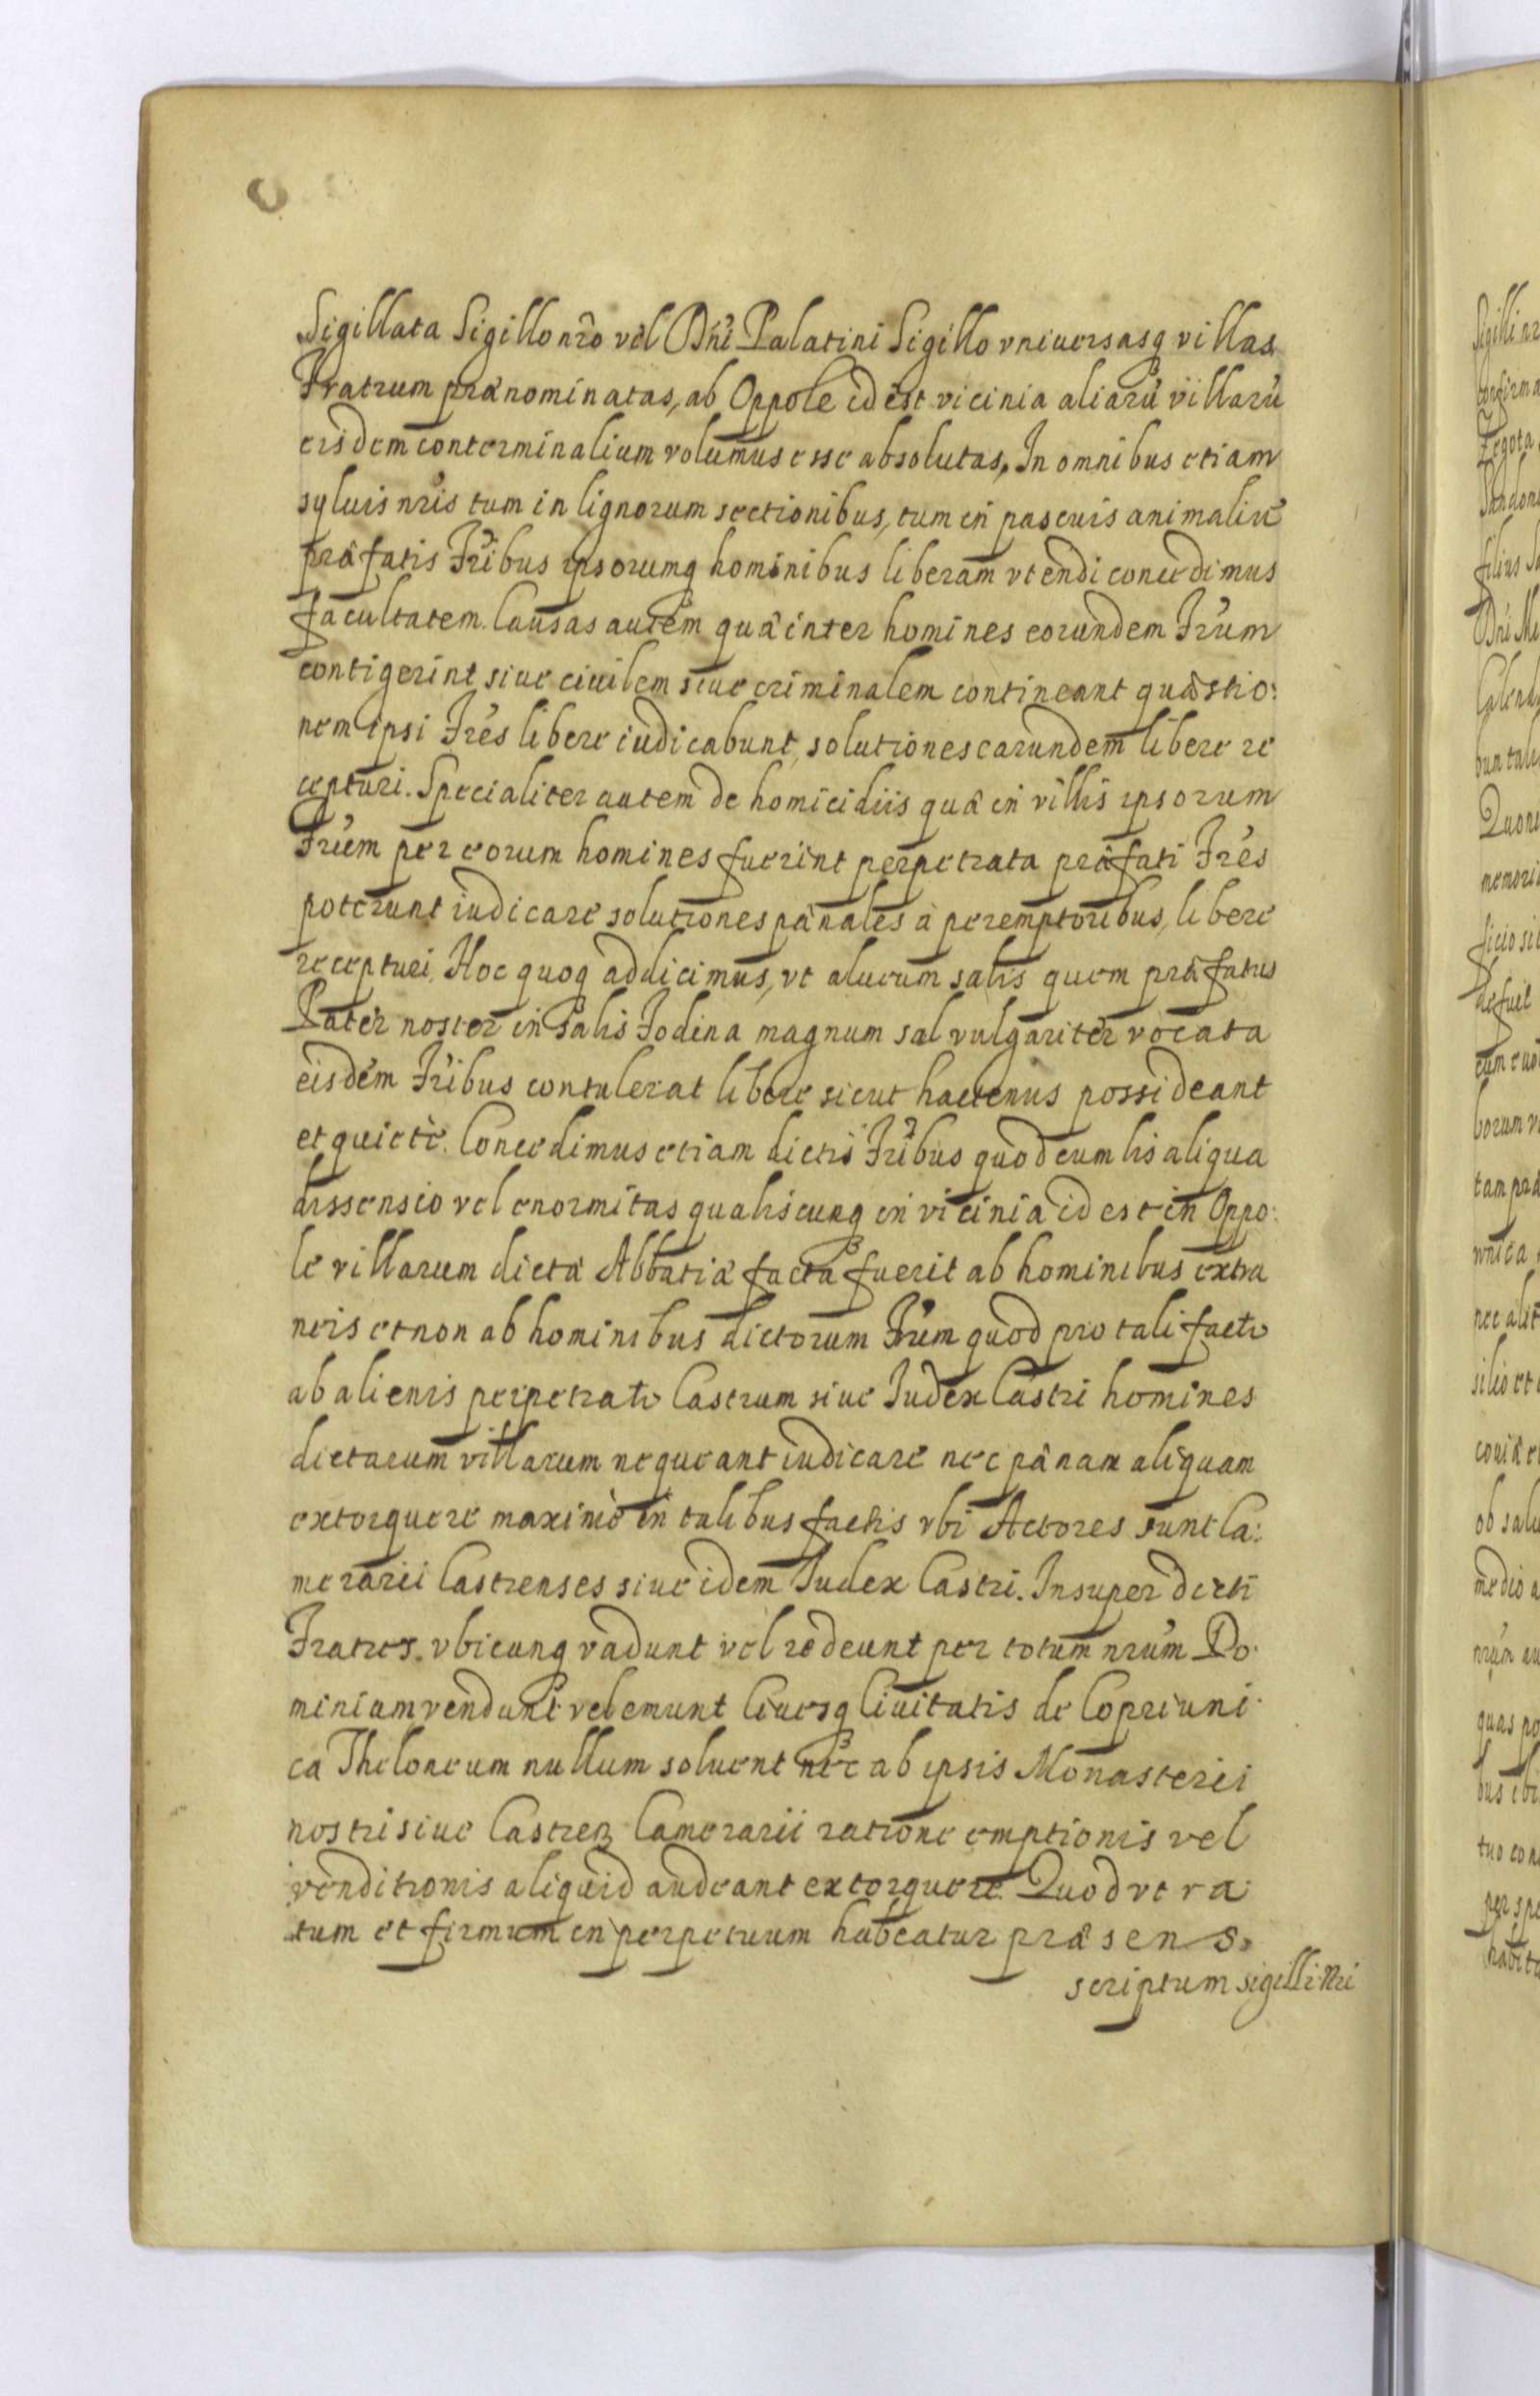 Sigillata Sigillo nr̃o vel Dñi Palatini Sigillo vniuersasq villas
Fratrum prænominatas, ab Oppole id est vicinia aliarũ villarũ
eisdem conterminalium volumus esse absolutas, In omnibus etiam
syluis nr̃is tum in lignorum sectionibus, tum in pascuis animaliũ
præfatis Fr̃ibus ipsorumq hominibus liberam vtendi concedimus
facultatem. Causas autem quæ inter homines eorundem Fr̃um
contigerint siue ciuilem siue criminalem contineant quæstio:
nem ipsi Fr̃es libere iudicabunt, solutiones earundem libere re
cepturi. Specialiter autem de homicidiis quæ in villis ipsorum
Fr̃um per eorum homines fuerint perpetrata præfati Fr̃es
poterunt iudicare solutiones pænales à peremptoribus, libere
recepturi, Hoc quoq addicimus, vt alueum salis quem præfatus
Pater noster in Salis Fodina magnum sal vulgariter vocata
eisdem Fr̃ibus contulerat libere sicut hactenus possideant
et quietè. Concedimus etiam dictis Fr̃ibus quod cum lis aliqua
dissensio vel enormitas qualiscunq in vicinia id est in Oppo:
le villarum dictæ Abbatiæ facta fuerit ab hominibus extra
neis et non ab hominibus dictorum Fr̃um quod pro tali facto
ab alienis perpetrato Castrum siue Iudex Castri homines
dictarum villarum nequeant iudicare nec pænam aliquam
extorquere maximè in talibus factis vbi Actores sunt Ca:
merarii Castrenses siue idem Iudex Castri. Insuper dicti
Fratres vbicunq vadunt vel redeunt per totum nr̃um Do:
minium vendunt vel emunt Ciuesq Ciuitatis de Copriuni:
ca Theloneum nullum soluent nec ab ipsis Monasterii
nostri siue Castreñ Camerarii ratione emptionis vel
venditionis aliquid audeant extorquere. Quod vt ra:
tum et firmum in perpetuum habeatur præsens
scriptum sigilli nr̃i